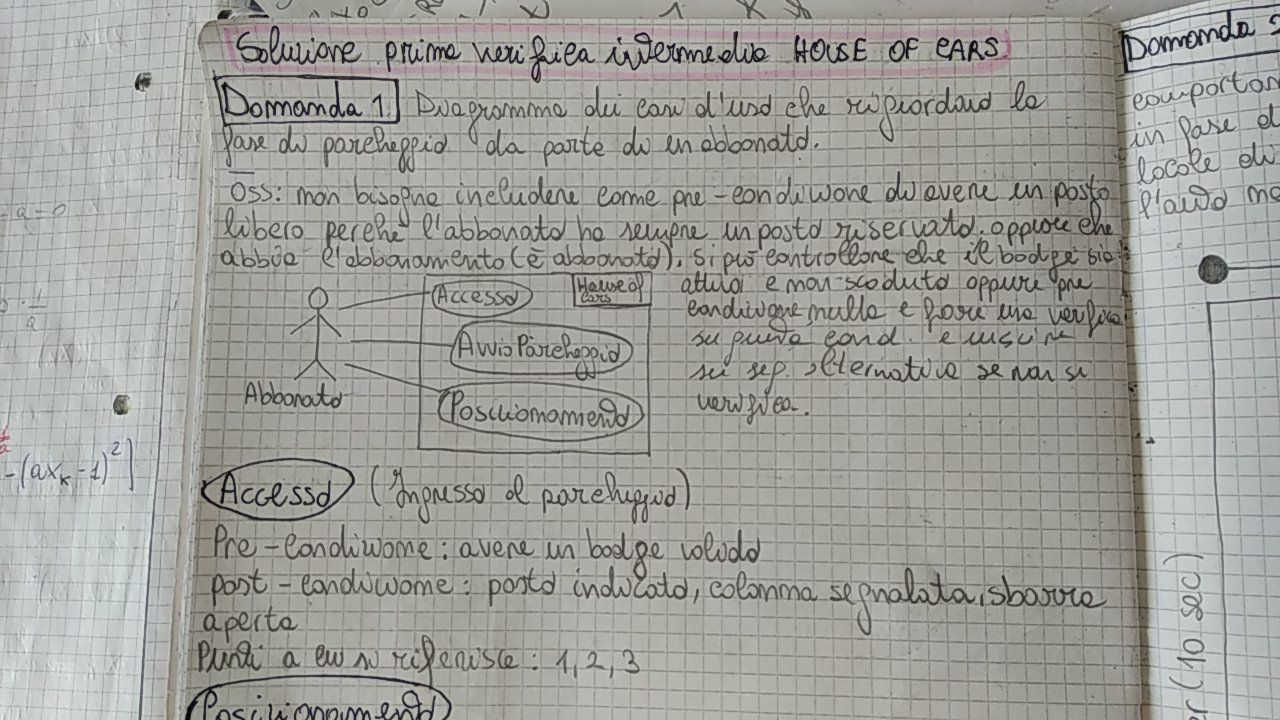 Soluzione prima verifica intermedia HOUSE OF CARS
Domanda 1. Diagramma dei casi d'uso che riguardano la
fase di parcheggio da parte di un abbonato.
Oss: non bisogna includere come pre-condizione di avere un posto
libero perché l'abbonato ha sempre un posto riservato. oppure che
abbia l'abbonamento (è abbonato). Si può controllare che il badge sia
attivo e non scaduto oppure pre
condizione nulla e fare una verifica
su questa cond. e uscire
su seq. alternativa se non si
verifica.
Accesso
House of
Cars
Avvio Parcheggio
Posizionamento
Abbonato
Accesso (Ingresso al parcheggio)
Pre-condizione: avere un badge valido
post-condizione: posto indicato, colonna segnalata, sbarra
aperta
Punti a cui si riferisce: 1, 2, 3
Posizionamento
Domanda
comportan
in fase d
locale di
-(axₖ-1)²]
r (10 sec)